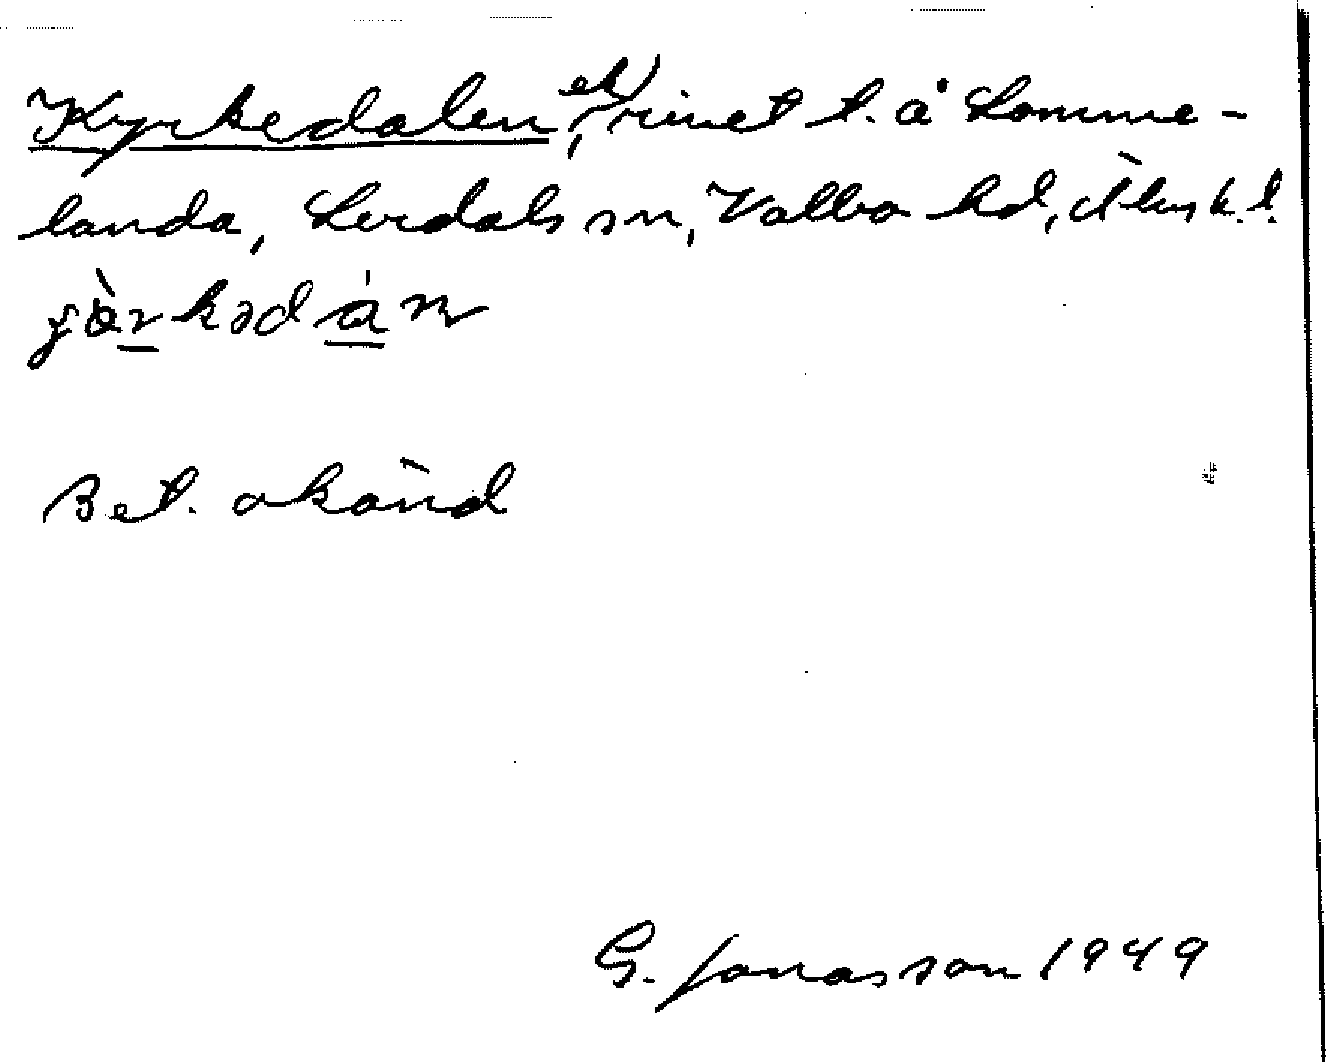 Kyrkedalen, rivet t. å Lomme-
landa, Lerdals sn, Valbo hd, Älvsb. l.
Bet. okänd
G. Jonasson 1949